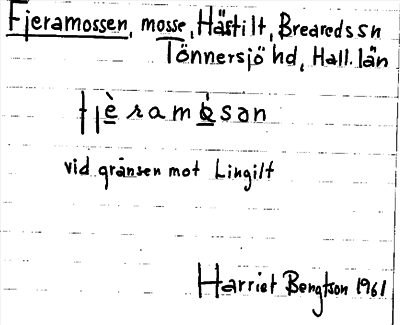 Fjeramossen, mosse, Håstilt, Breareds sn
Tönnersjö hd, Hall. län
fjèramòsan
vid gränsen mot Lingilt
Harriet Bengtson 1961